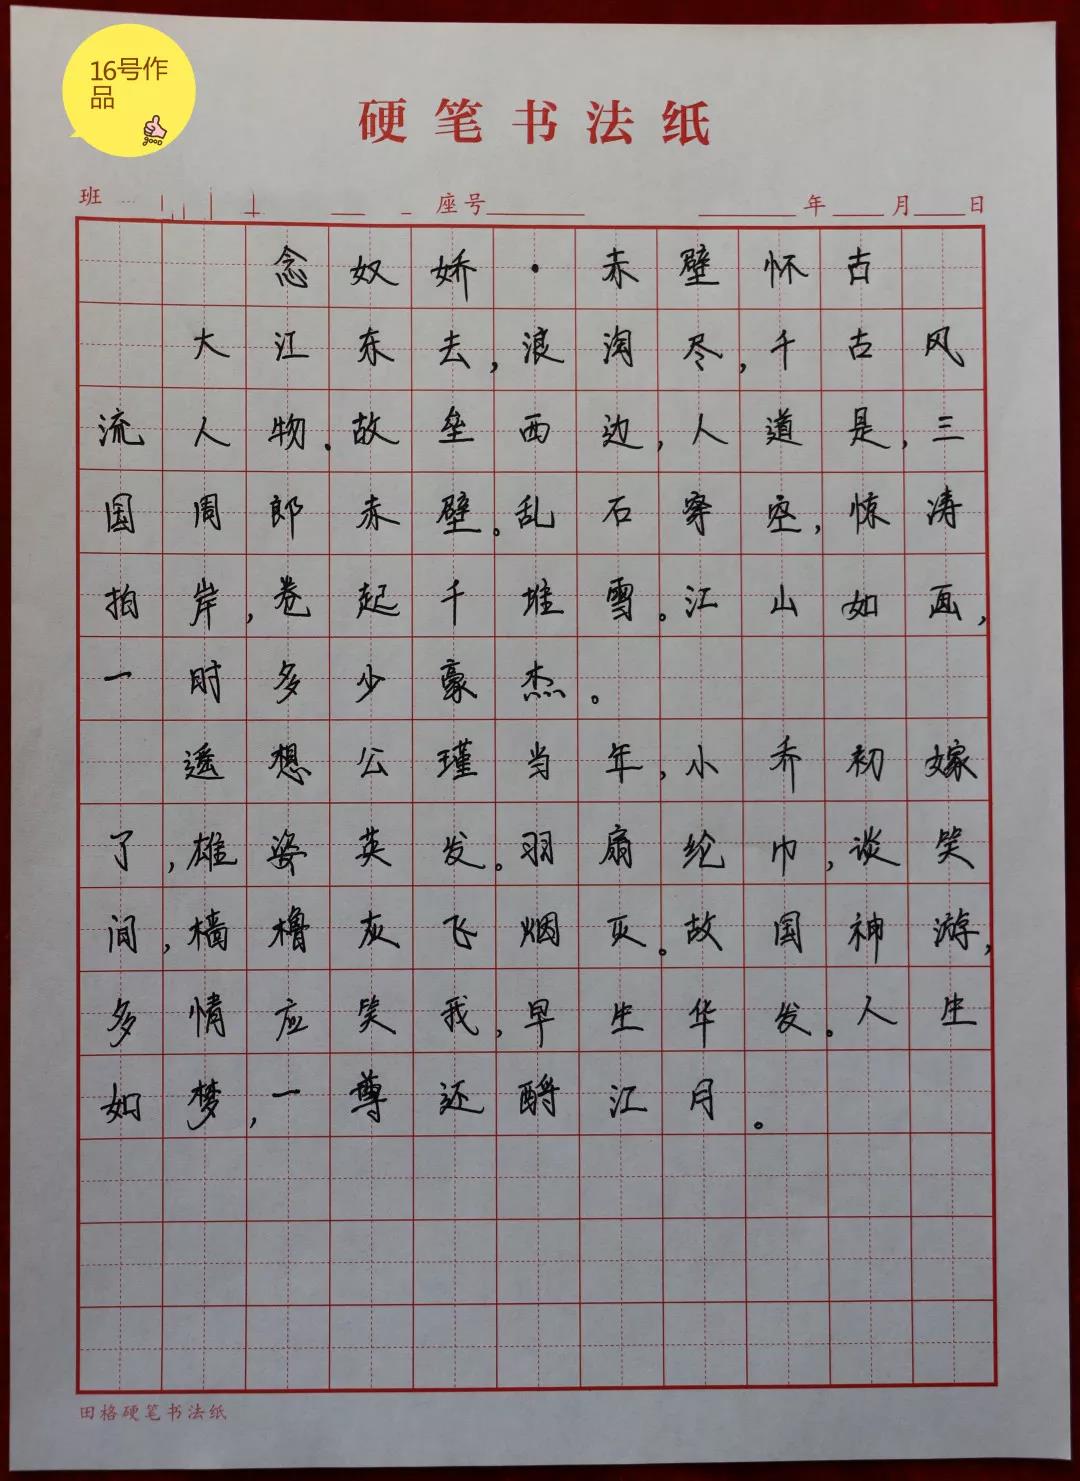 16号作
品
good
硬笔书法纸
班 座号 年 月 日
念奴娇·赤壁怀古
大江东去,浪淘尽,千古风
流人物.故垒西边,人道是,三
国周郎赤壁。乱石穿空,惊涛
拍岸,卷起千堆雪。江山如画,
一时多少豪杰。
遥想公瑾当年,小乔初嫁
了,雄姿英发。羽扇纶巾,谈笑
间,樯橹灰飞烟灭。故国神游,
多情应笑我,早生华发。人生
如梦,一尊还酹江月。
田格硬笔书法纸